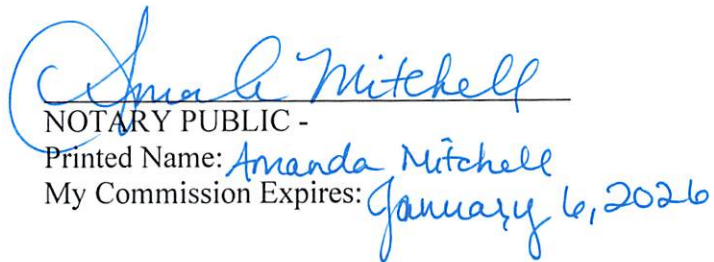 Amanda Mitchell
NOTARY PUBLIC -
Printed Name: Amanda Mitchell
My Commission Expires: January 6, 2026